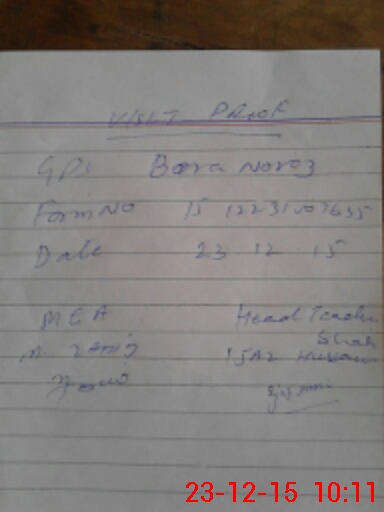 VISIT PROOF
GPS Bora Noroz
Form NO 15 12231007635
Date 23 12 15
MEA Head Teacher
M. ZAHID Shah
Hussain
23-12-15 10:11